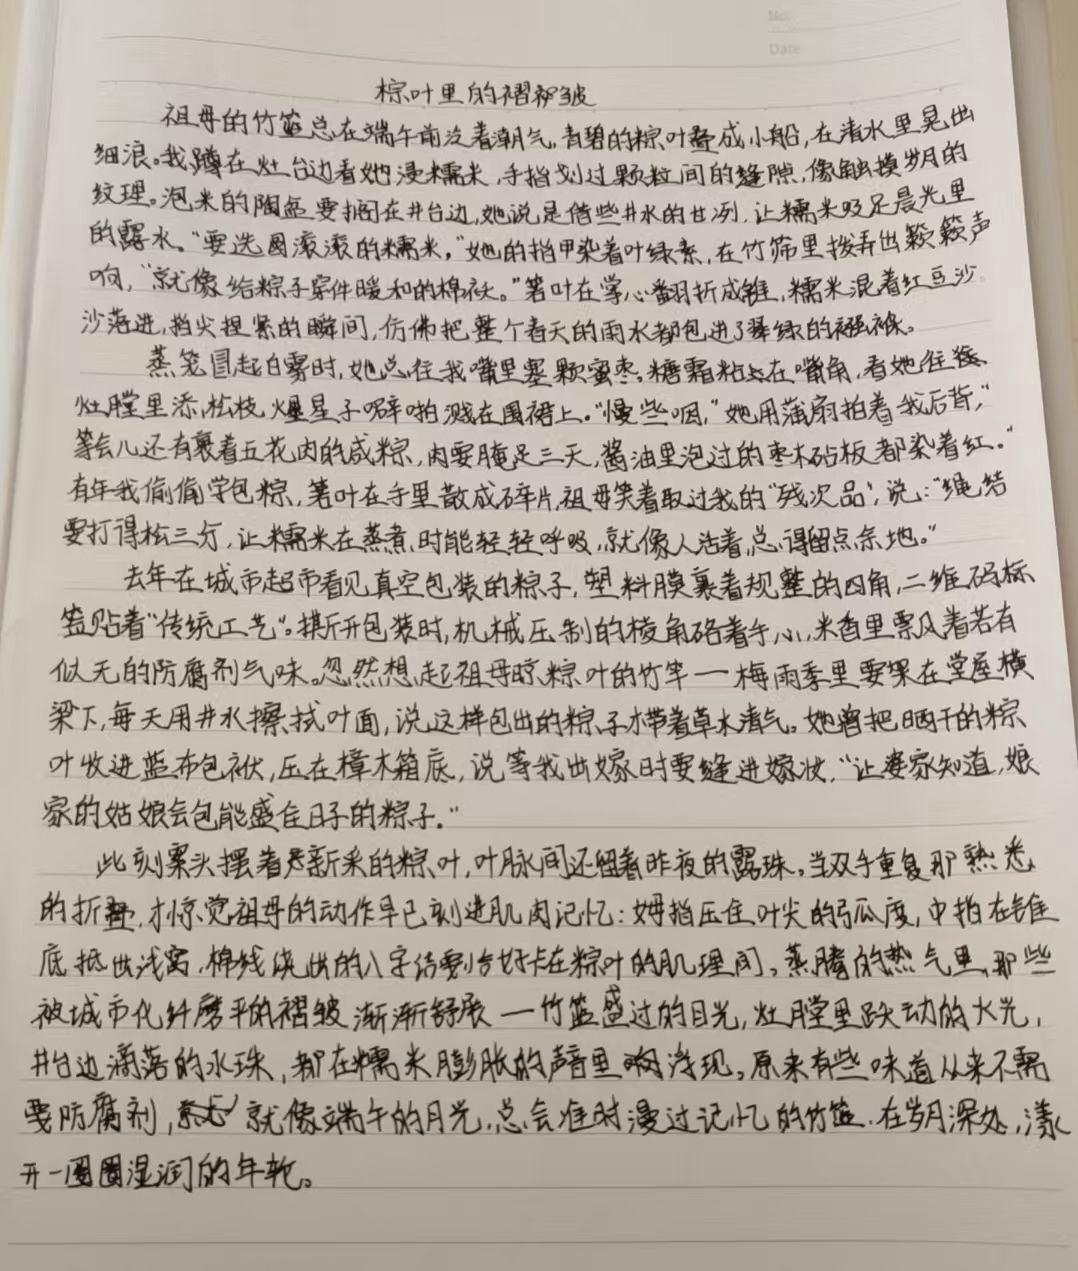 No.
Date
棕叶里的褶皱
祖母的竹篮总在端午前泛着潮气。青碧的粽叶叠成小船，在清水里晃出
细浪。我蹲在灶台边看她浸糯米，手指划过颗粒间的缝隙，像触摸岁月的
纹理。泡米的陶盆要搁在井台边，她说是借些井水的甘冽，让糯米吸足晨光里
的露水。“要选圆滚滚的糯米，”她的指甲染着叶绿素，在竹筛里拨弄出簌簌声
响，“就像给粽子穿件暖和的棉袄。”箬叶在掌心翻折成锥，糯米混着红豆沙
沙落进，指尖捏紧的瞬间，仿佛把整个春天的雨水都包进了翠绿的襁褓。
蒸笼冒起白雾时，她总往我嘴里塞颗蜜枣。糖霜粘在嘴角，看她往
灶膛里添松枝，火星子噼啪溅在围裙上。“慢些咽，”她用蒲扇拍着我后背，”
等会儿还有裹着五花肉的咸粽，肉要腌足三天，酱油里泡过的枣木砧板都染着红。”
有年我偷偷学包粽，箬叶在手里散成碎片，祖母笑着取过我的“残次品”，说：“绳结
要打得松三分，让糯米在蒸煮时能轻轻呼吸，就像人活着，总得留点余地。”
去年在城市超市看见真空包装的粽子，塑料膜裹着规整的四角，二维码标
签贴着“传统工艺”。拆开包装时，机械压制的棱角硌着手心，米香里飘着若有
似无的防腐剂气味。忽然想起祖母晾粽叶的竹竿——梅雨季里要架在堂屋横
梁下，每天用井水擦拭叶面，说这样包出的粽子才带着草木清气。她曾把晒干的粽
叶收进蓝布包袱，压在樟木箱底，说等我出嫁时要缝进嫁妆，“让婆家知道，娘
家的姑娘会包能盛住日子的粽子。”
此刻案头摆着新采的粽叶，叶脉间还留着昨夜的露珠。当双手重复那熟悉
的折叠，才惊觉祖母的动作早已刻进肌肉记忆：姆指压住叶尖的弧度，中指在锥
底抵出浅窝，棉线绕出的八字结要恰好卡在粽叶的肌理间。蒸腾的热气里，那些
被城市化纤磨平的褶皱渐渐舒展——竹篮盛过的月光，灶膛里跃动的火光，
井台边滴落的水珠，都在糯米膨胀的声音里浮现。原来有些味道从来不需
要防腐剂，就像端午的月光，总会准时漫过记忆的竹篮，在岁月深处，漾
开一圈圈湿润的年轮。